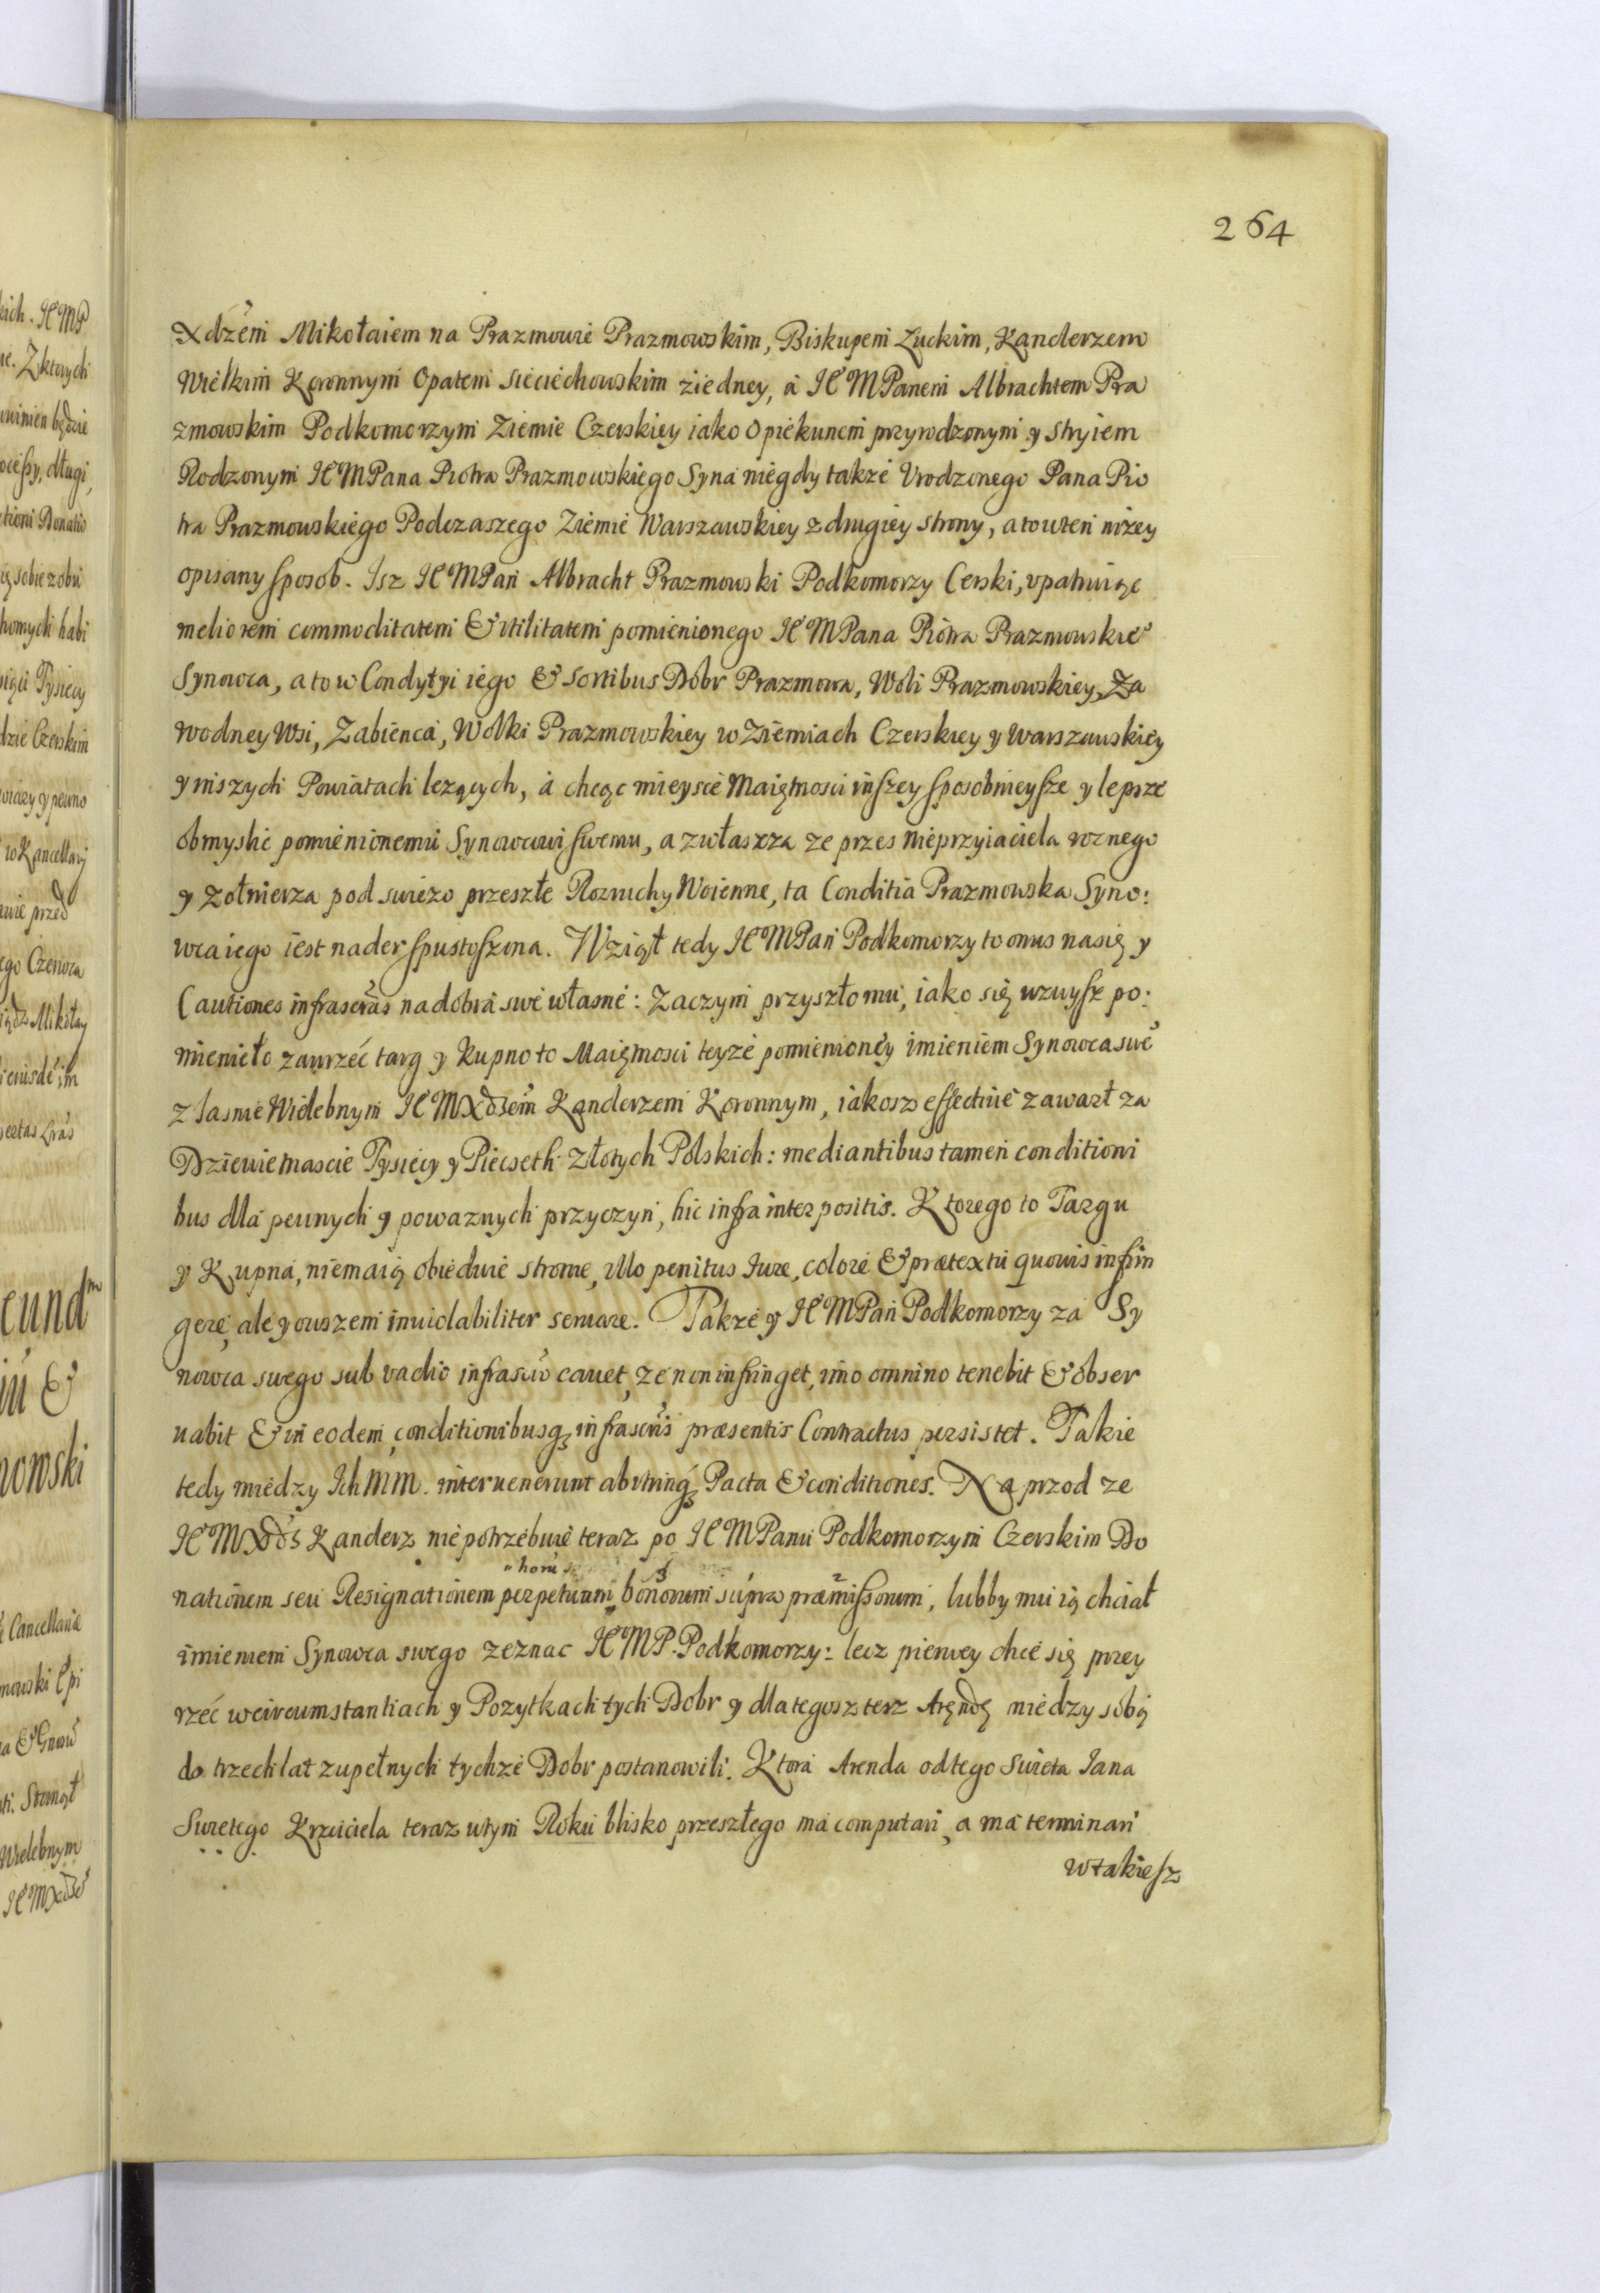 264
Xdzem Mikołaiem na Prazmowie Prazmowskim, Biskupem Luckim, Kanclerzem
Wielkim Koronnym Opatem Sieciechowskim ziedney, á JE MPanem Albrachtem Pra
zmowskim Podkomorzym Ziemie Czerskiey iako Opiekunem przyrodzonym y stryiem
Rodzonym JE MPana Piotra Prazmowskiego Syna niegdy takze Vrodzonego Pana Pio
tra Prazmowskiego Podczaszego Ziemie Warszawskiey zdrugiey strony, a to wten nizey
opisany sposob. Isz JE MPan Albracht Prazmowski Podkomorzy Cerski, vpatruiąc
meliorem commoditatem & vtilitatem pomienionego JE MPana Piotra Prazmowskie°
Synowca, a to w Condytyi iego & sortibus Dobr Prazmowa, Woli Prazmowskiey, Za
wodney Wsi, Zabienca, Wolki Prazmowskiey w Ziemiach Czerskiey y Warszawskiey
y inszych Powiatach lezących, á chcąc mieysce Maiętnosci inszey sposobnieysze y lepsze
obmyslić pomienionemu Synowcowi swemu, a zwłaszcza ze przes nieprzyiaciela roznego
y Zołnierza pod swiezo przeszłe Rozruchy Woienne, ta Conditia Prazmowska Syno:
wca iego iest nader spustoszona. Wziął tedy JE MPan Podkomorzy to onus nasię y
Cautiones infrascras na dobra swe własne: Zaczym przyszło mu, iako się wzwysz po:
mieniło zawrzeć targ y Kupno to Maiętnosci teyze pomienioney imieniem Synowca swe°
z Iasnie Wielebnym JE MXdzem Kanclerzem Koronnym, iakosz effectiue zawarł za
Dziewietnascie Tysięcy y Piecseth Złotych Polskich: mediantibus tamen conditioni
bus dla pewnych y powaznych przyczyn, hic infra interpositis. Ktorego to Targu
y Kupna, niemaią obiedwie stronie, vllo penitus Iure, colore & prætextu quouis infrin
gere, ale y owszem inuiolabiliter seruare. Takze y JE MPan Podkomorzy za Sy
nowca swego sub vadio infrascto cauet, ze non infringet, imo omnino tenebit & obser
uabit & in eodem, conditionibusq; infrascris præsentis Contractus persistet. Takie
tedy miedzy Ich MM. interuenerunt abvtrinq; Pacta & conditiones. Na przod ze
JE MXdz Kanclerz nie potrzebuie teraz po JE MPanu Podkomorzym Czerskim Do
nationem seu Resignationem perpetuam bonorum supra præmissorum, lubby mu ią chciał
imieniem Synowca swego zeznac JE MP. Podkomorzy: lecz pierwey chce się przey
rzeć wcircumstantiach y Pozytkach tych Dobr y dlategosz terz Arędę miedzy sobą
do trzech lat zupełnych tychze Dobr postanowili. Ktora Arenda od tego Swieta Iana
Swietego Krzciciela teraz wtym Roku blisko przeszłego ma computari, a ma terminari
wtakiesz